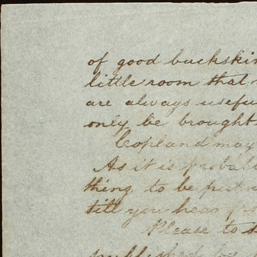 of good buckskin
little room that
are always usefu
only be brought
Copland may
As it is probabl
thing to be put
till you hear
Please to